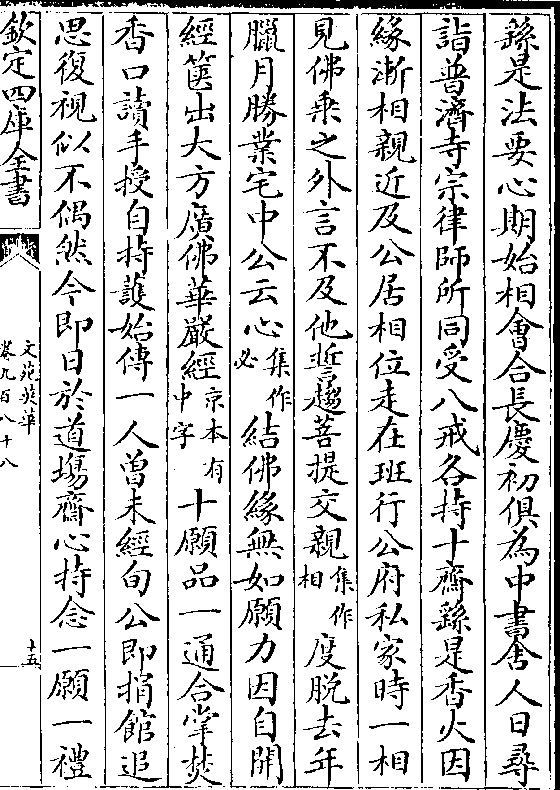 繇是法要心期始相會合長慶初俱為中書舍人日尋
詣普濟寺宗律師所同受八戒各持十齋繇是香火因
緣漸相親近及公居相位走在班行公府私家時一相
見佛乘之外言不及他誓趨菩提交親集作相度脫去年
臘月勝業宅中公云心集作必結佛緣無如願力因自開
經篋出大方廣佛華嚴經京本有中字十願品一通合掌焚
香口讀手授自持護始傳一人曾未經旬公即捐館追
思復視似不偶然今即日於道場齋心持念一願一禮
欽定四庫全書
文苑英華
卷九百八十八
十五